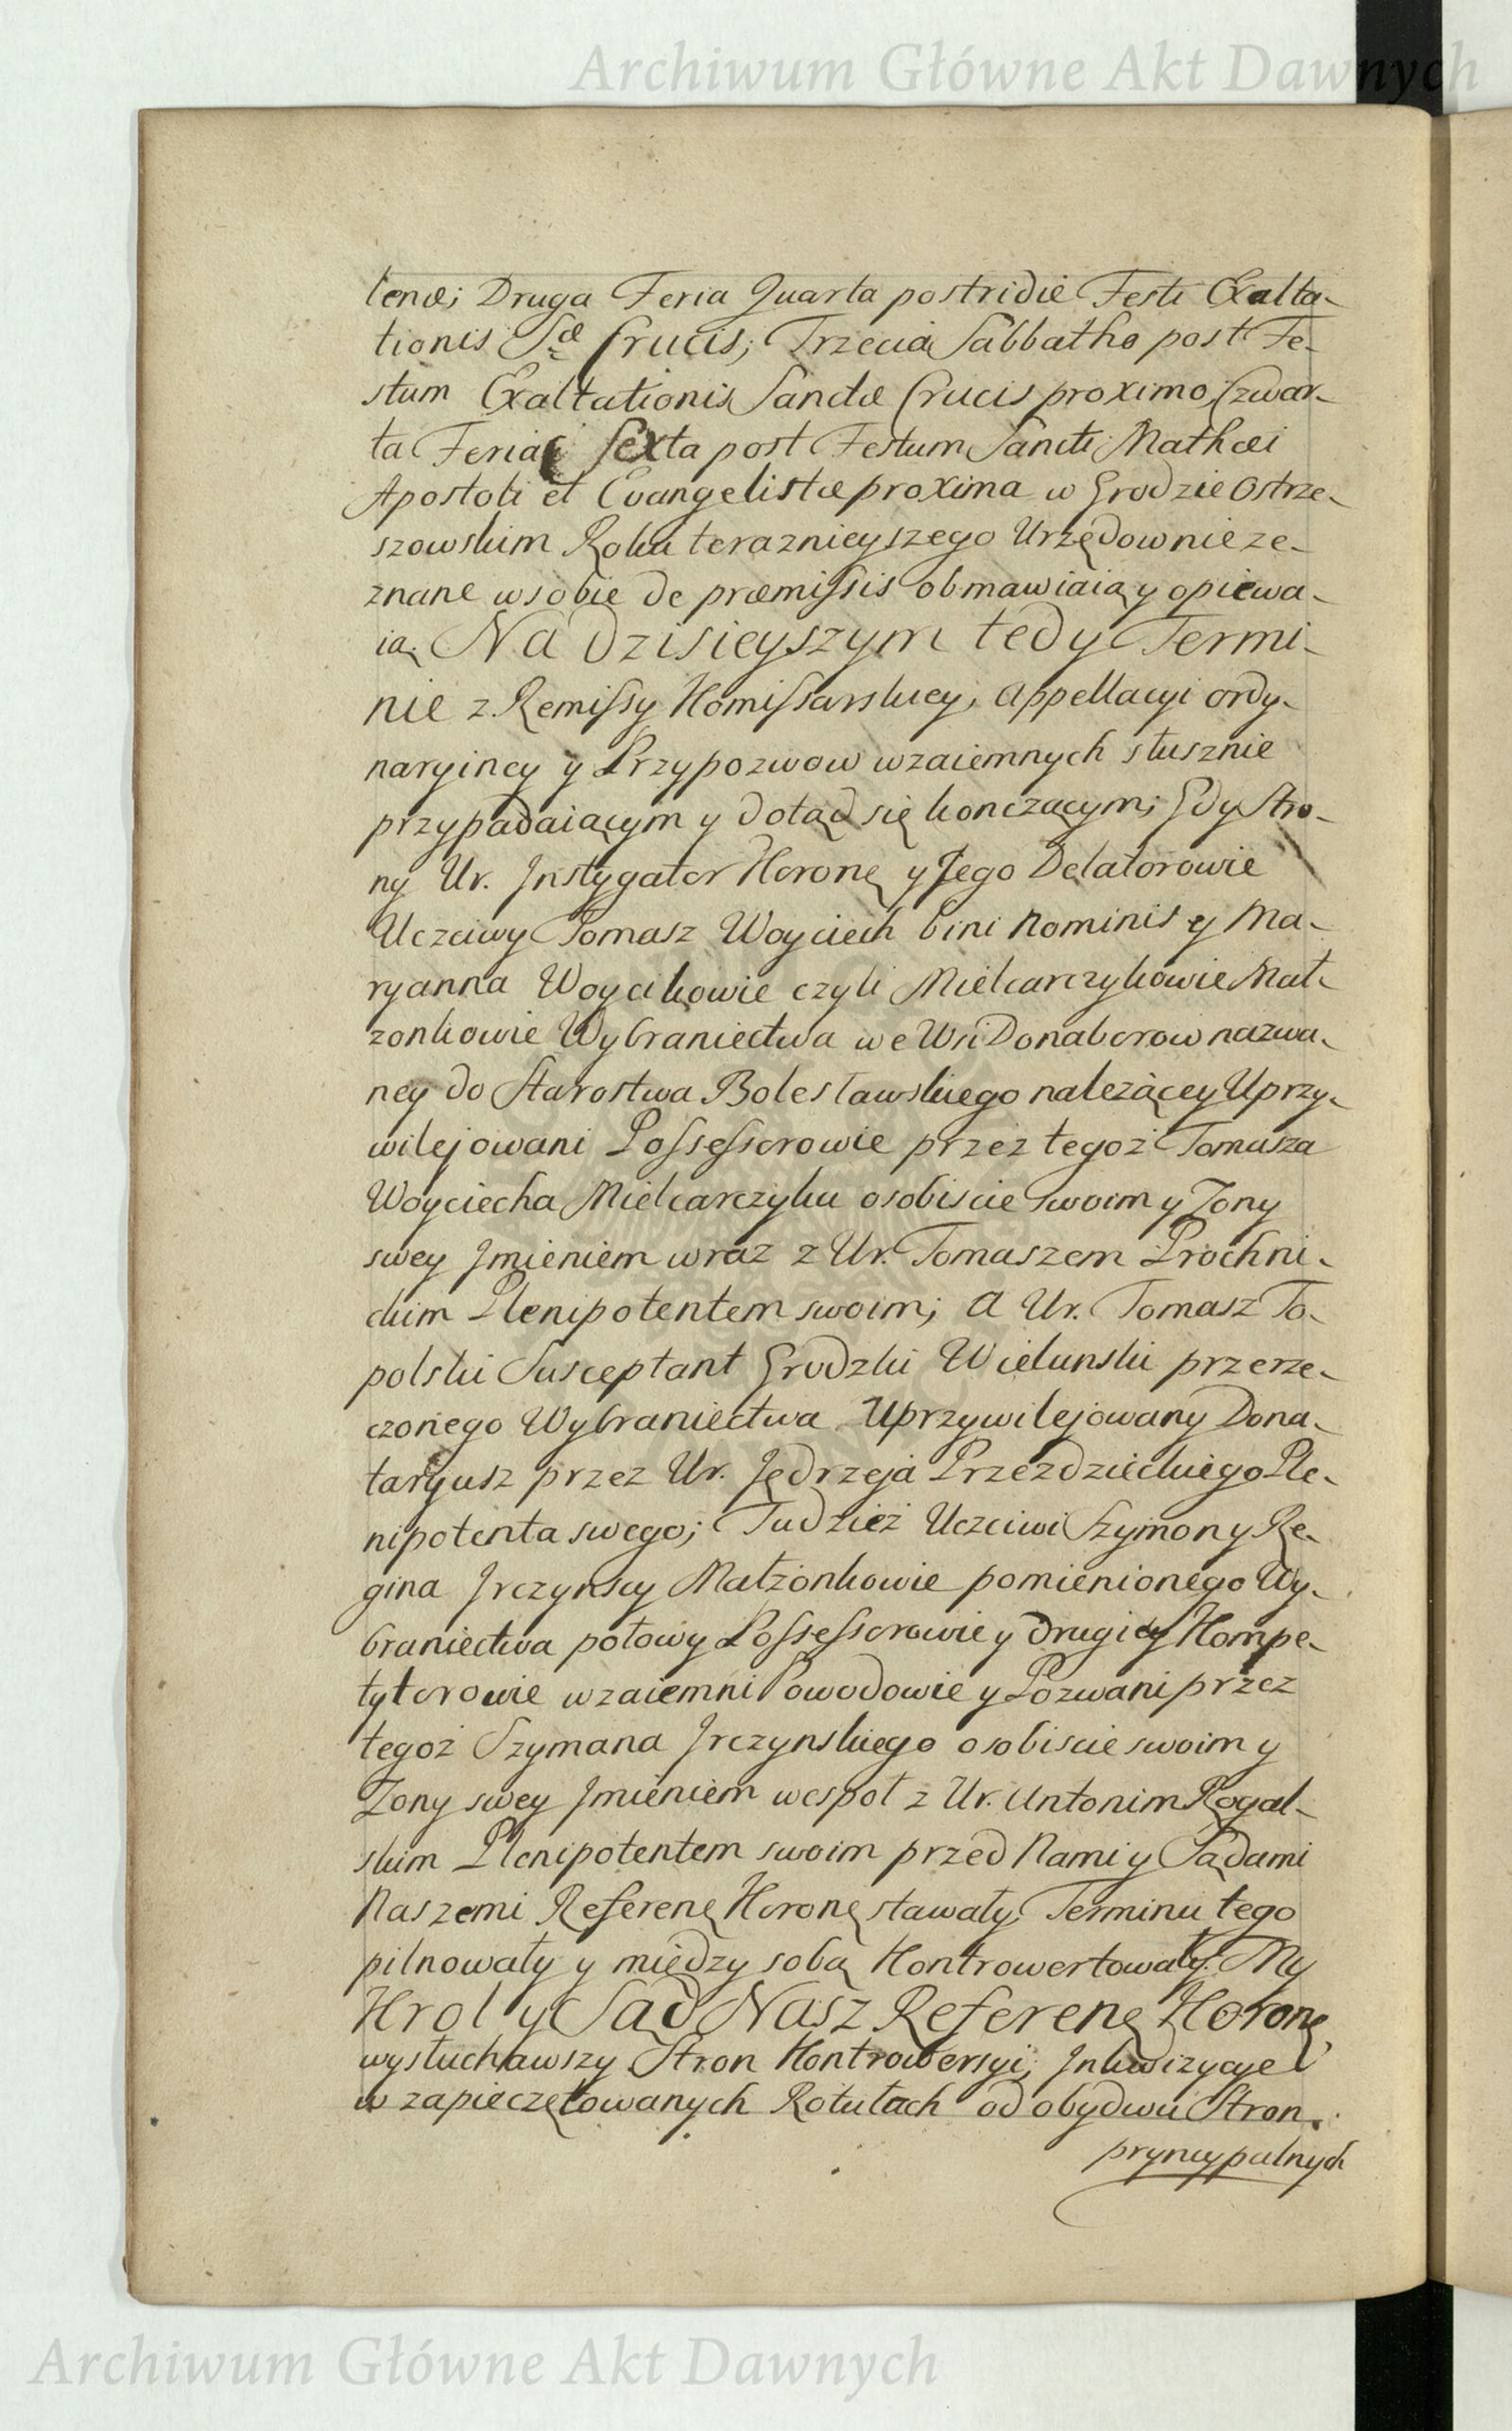 Archiwum Główne Akt Dawnych
tenæ; Druga Feria Quarta postridie Festi Exalta-
tionis Sæ Crucis; Trzecia Sabbatho post Fe-
stum Exaltationis Sanctæ Crucis proximo, Czwar-
ta Feria Sexta post Festum Sancti Mathæi
Apostoli et Evangelistæ proxima w Grodzie Ostrze-
szowskim Roku teraznieyszego Urzędownie ze-
znane w sobie de præmissis obmawiaią y opiewa-
ią. Na dzisieyszym tedy Termi-
nie z Remissy Kommissarskiey, Appellacyi ordy-
naryiney y Przypozwow wzaiemnych słusznie
przypadaiącym y dotąd się kończącym; Gdy Stro-
ny Ur. Instygator Koronę y Jego Delatorowie
Uczciwy Tomasz Woyciech bini Nominis y Ma-
ryanna Woycikowie czyli Mielcarczykowie Mał-
zonkowie Wybraniectwa we Wsi Donaborow nazwa-
ney do Starostwa Bolesławskiego należącey Uprzy-
wilejowani Possessorowie przez tegoż Tomasza
Woyciecha Mielcarczyka osobiscie swoim y Zony
swey Jmieniem wraz z Ur. Tomaszem Prochni-
ckim Plenipotentem swoim; A Ur. Tomasz To-
polski Susceptant Grodzki Wielunski przerze-
czonego Wybraniectwa Uprzywilejowany Dona-
taryusz przez Ur. Jędrzeja Przezdzieckiego Ple-
nipotenta swego; Tudzież Uczciwi Szymon y Re-
gina Jrczynscy Małżonkowie pomienionego Wy-
braniectwa połowy Possessorowie y drugiey Kompe-
tytorowie wzaiemni Powodowie y Pozwani przez
tegoż Szymana Jrczynskiego osobiscie swoim y
Zony swey Jmieniem wespoł z Ur. Antonim Rogal-
skim Plenipotentem swoim przed Nami y Sądami
Naszemi Referenę Koronę stawały, Terminu tego
pilnowały y między sobą Kontrowertowały. My
Krol y Sąd Nasz Referenę Koronę
wysłuchawszy Stron Kontrowersyi; Inkwizycye
w zapieczętowanych Rotułach od obydwu Stron
pryncypalnych
Archiwum Główne Akt Dawnych